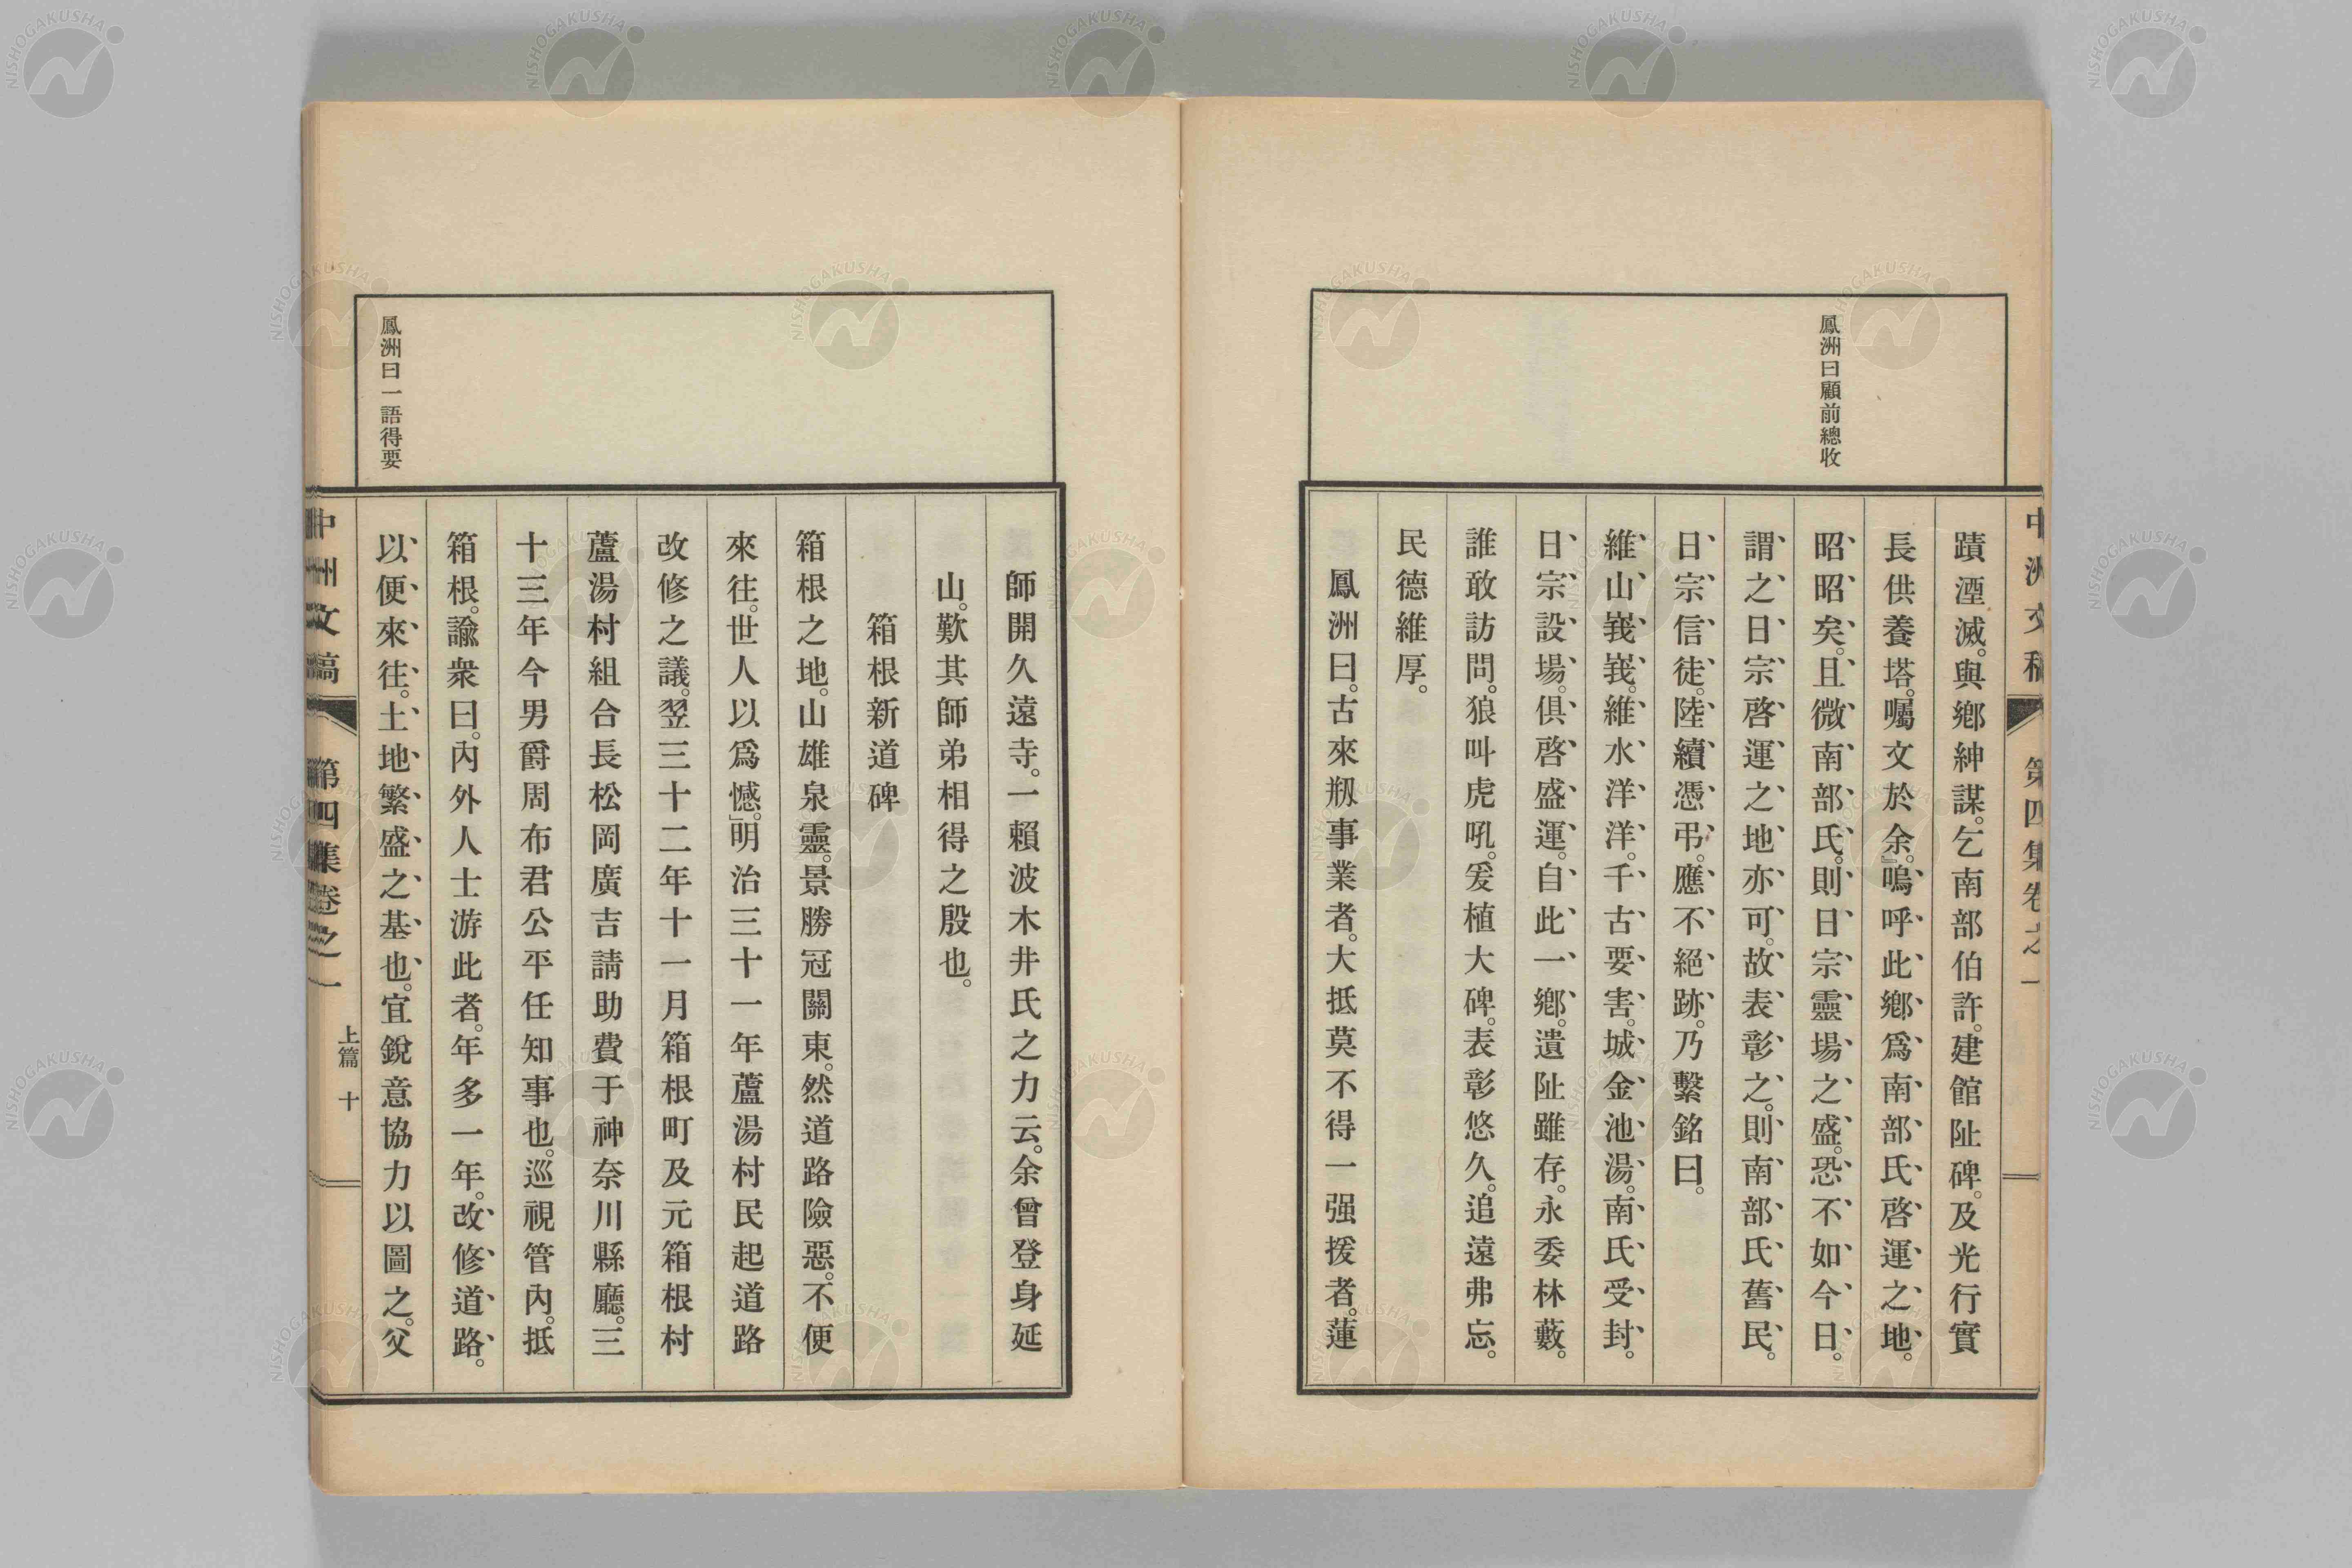 中洲文稿 第四集卷之一
鳳洲曰顧前總收
蹟湮滅。與鄕紳謀。乞南部伯許。建館阯碑。及光行實
長供養塔。囑文於余。』嗚呼此鄕爲南部氏啓運之地。
昭昭矣。且微南部氏。則日宗靈場之盛。恐不如今日。
謂之日宗啓運之地亦可。故表彰之。則南部氏舊民。
日宗信徒。陸續憑弔。應不絕跡。乃繫銘曰。
維山峩峩。維水洋洋。千古要害。城金池湯。南氏受封。
日宗設場。俱啓盛運。自此一鄕。遺阯雖存。永委林藪。
誰敢訪問。狼叫虎吼。爰植大碑。表彰悠久。追遠弗忘。
民德維厚。
鳳洲曰。古來剏事業者。大抵莫不得一强援者。蓮
師開久遠寺。一賴波木井氏之力云。余曾登身延
山。歎其師弟相得之殷也。
箱根新道碑
箱根之地。山雄泉靈。景勝冠關東。然道路險惡。不便
來往。世人以爲憾。』明治三十一年蘆湯村民起道路
改修之議。翌三十二年十一月箱根町及元箱根村
蘆湯村組合長松岡廣吉請助費于神奈川縣廳。三
十三年今男爵周布君公平任知事也。巡視管內。抵
箱根。諭衆曰。內外人士游此者。年多一年。改修道路。
以便來往。土地繁盛之基也。宜銳意協力以圖之。父
鳳洲曰一語得要
中洲文稿 第四集卷之一 上篇 十
NISHOGAKUSHA